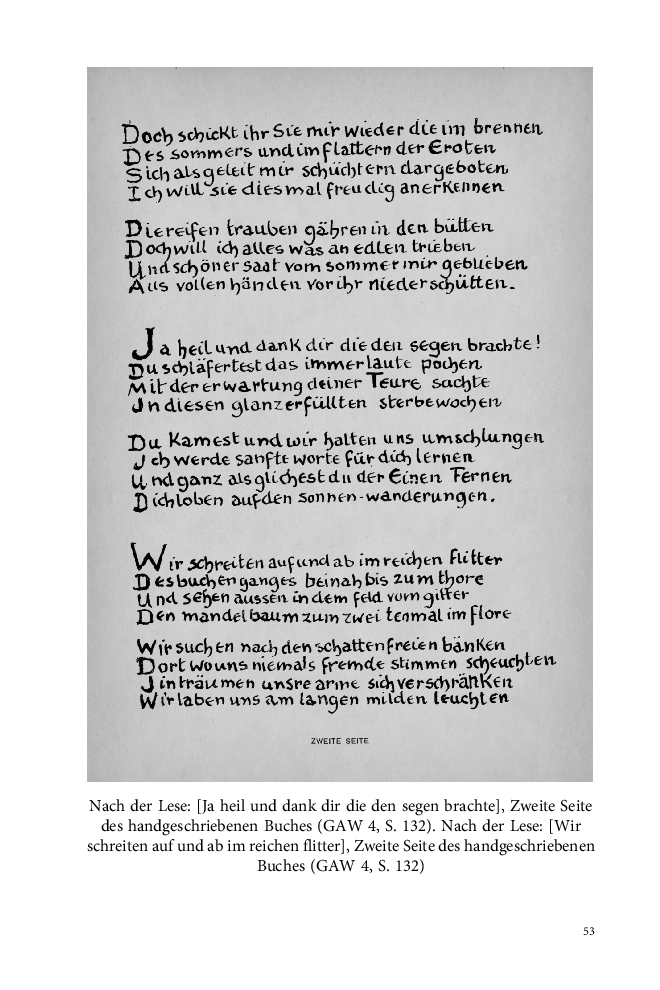 Doch schickt ihr Sie mir wieder die im brennen
Des sommers und im flattern der Eroten
Sich als geleit mir schüchtern dargeboten
Ich will sie diesmal freudig anerkennen
Die reifen trauben gähren in den bütten
Doch will ich alles was an edlen trieben
Und schöner saat vom sommer mir geblieben
Aus vollen händen vor ihr niederschütten.
Ja heil und dank dir die den segen brachte!
Du schläfertest das immer laute pochen
Mit der erwartung deiner Teure sachte
In diesen glanzerfüllten sterbewochen
Du kamest und wir halten uns umschlungen
Ich werde sanfte worte für dich lernen
Und ganz als glichest du der Einen Fernen
Dich loben auf den sonnen-wanderungen.
Wir schreiten auf und ab im reichen flitter
Des buchenganges beinah bis zum thore
Und sehen aussen in dem feld vom gitter
Den mandelbaum zum zweitenmal im flore
Wir suchen nach den schattenfreien bänken
Dort wo uns niemals fremde stimmen scheuchten
In träumen unsre arme sich verschränken
Wir laben uns am langen milden leuchten
ZWEITE SEITE
Nach der Lese: [Ja heil und dank dir die den segen brachte], Zweite Seite
des handgeschriebenen Buches (GAW 4, S. 132). Nach der Lese: [Wir
schreiten auf und ab im reichen flitter], Zweite Seite des handgeschriebenen
Buches (GAW 4, S. 132)
53